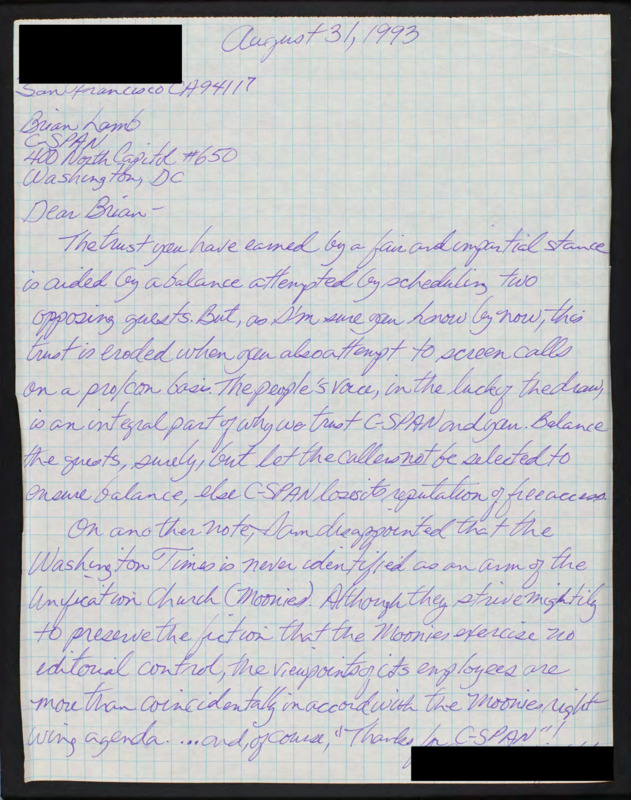 August 31, 1993
San Francisco CA 94117
Brian Lamb
C-SPAN
400 North Capitol #650
Washington, DC
Dear Brian -
The trust you have earned by a fair and impartial stance
is aided by a balance attempted by scheduling two
opposing guests. But, as I'm sure you know by now, this
trust is eroded when you also attempt to screen calls
on a pro/con basis. The people's voice, in the luck of the draw,
is an integral part of why we trust C-SPAN and you. Balance
the guests, surely, but let the callers not be selected to
ensure balance, else C-SPAN loses its reputation of free access.
On another note, I am disappointed that the
Washington Times is never identified as an arm of the
Unification Church (Moonies). Although they strive mightily
to preserve the fiction that the Moonies exercise no
editorial control, the viewpoints of its employees are
more than coincidentally in accord with the Moonies right
wing agenda. ...and, of course, "Thanks for C-SPAN"!